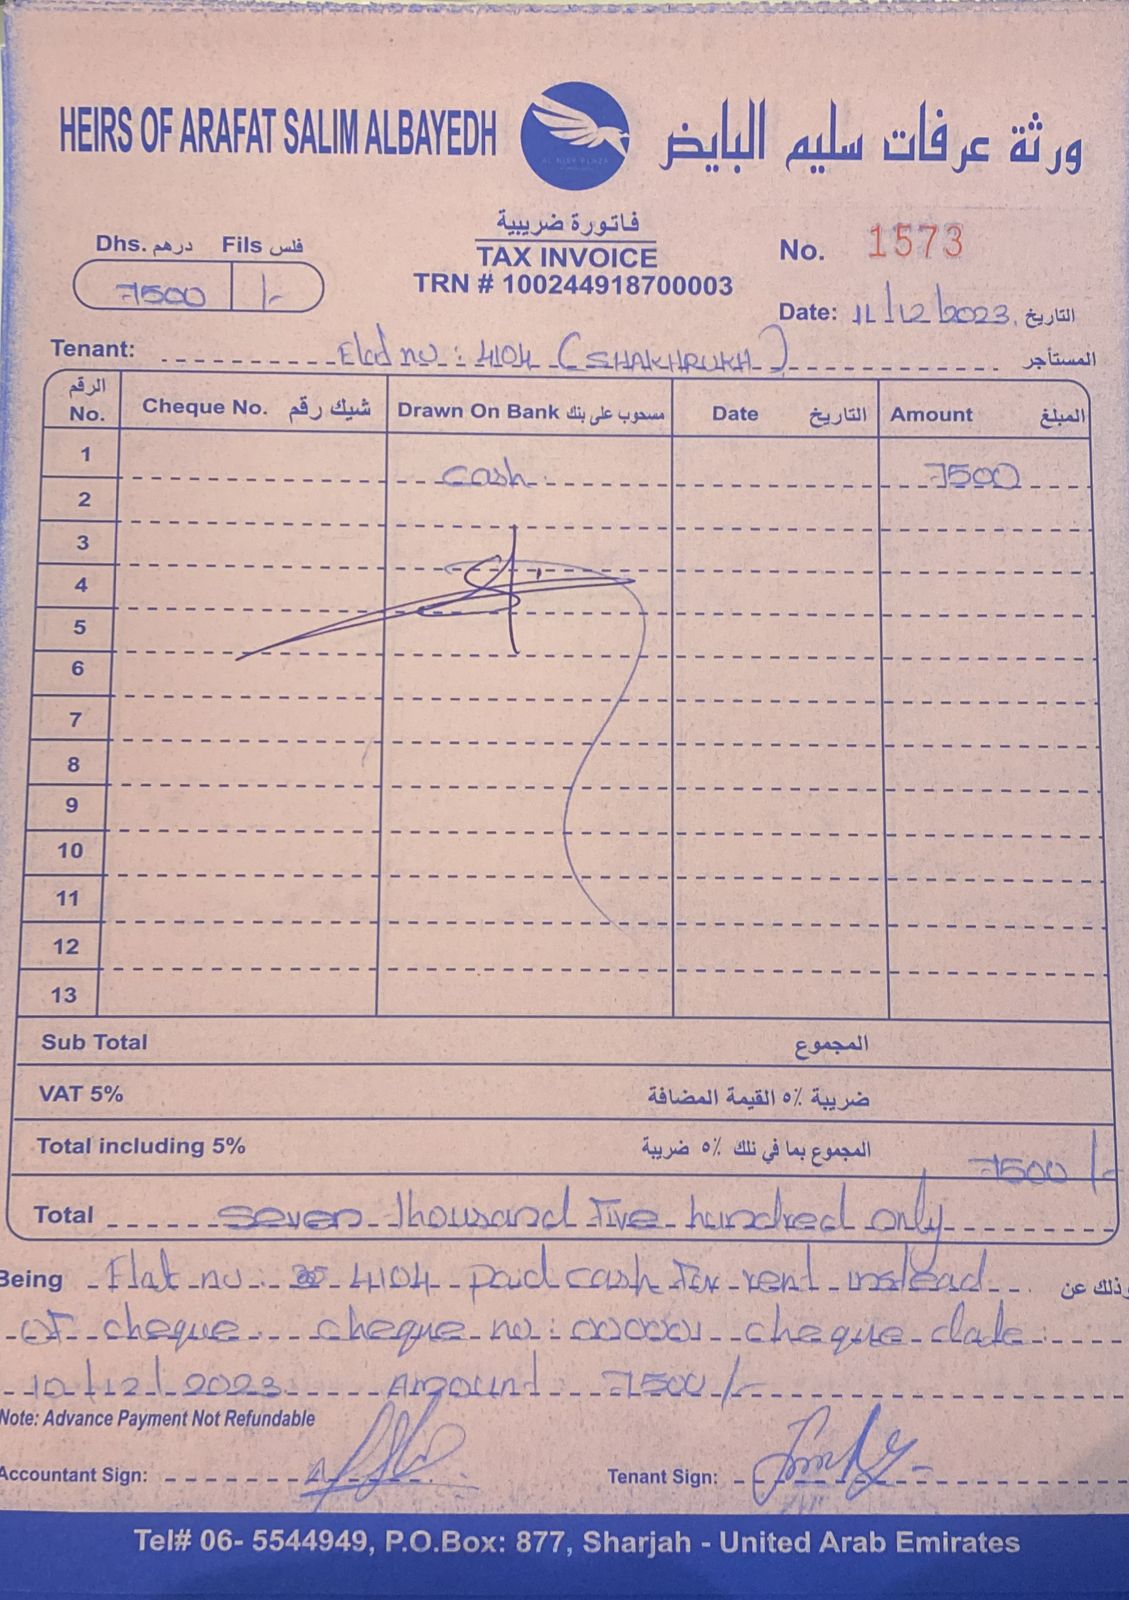 HEIRS OF ARAFAT SALIM ALBAYEDH
ورثة عرفات سليم البايض
AL NISR PLAZA
فاتورة ضريبية
TAX INVOICE
TRN # 100244918700003
Dhs. درهم Fils فلس
7500 /-
No. 1573
Date: 11/12/2023. التاريخ
Tenant: Flat no : 4104 (SHAKHRUKH) المستأجر
الرقم No. Cheque No. شيك رقم Drawn On Bank مسحوب على بنك Date التاريخ Amount المبلغ
1 cash. 7500
2
3
4
5
6
7
8
9
10
11
12
13
Sub Total المجموع
VAT 5% ضريبة ٥٪ القيمة المضافة
Total including 5% المجموع بما في ذلك ٥٪ ضريبة 7500/-
Total seven thousand five hundred only
Being Flat no : 4104 paid cash for rent instead وذلك عن
of cheque cheque no: 000001 cheque date:
10/12/2023 Amount 7500/-
Note: Advance Payment Not Refundable
Accountant Sign: Tenant Sign:
Tel# 06- 5544949, P.O.Box: 877, Sharjah - United Arab Emirates